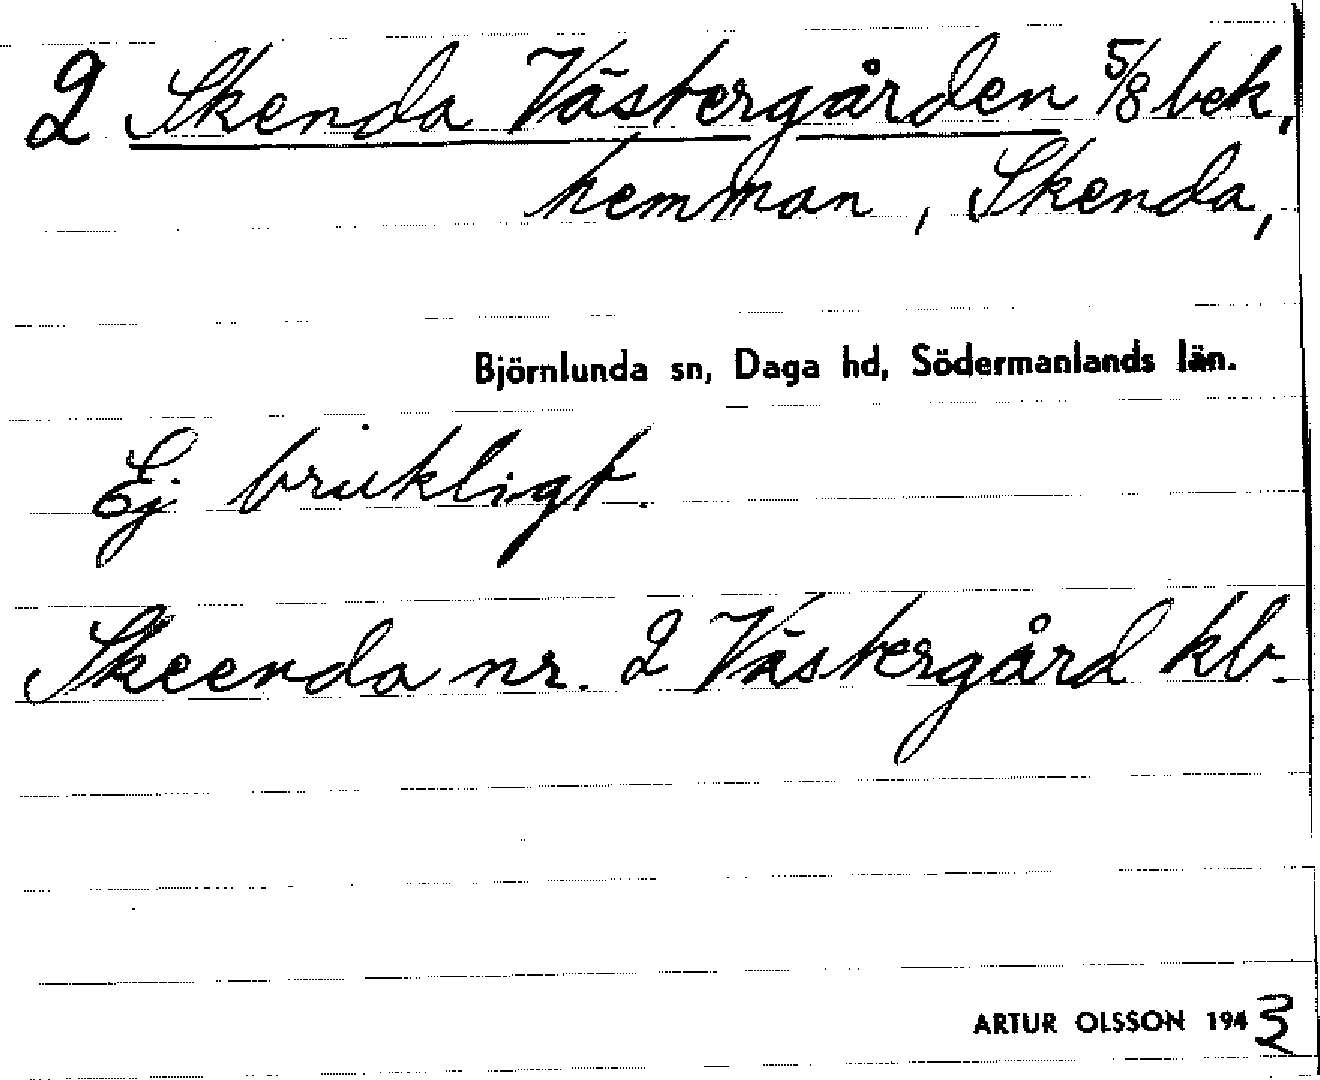 2 Skenda Västergården 5/8 bek.
hemman, Skenda,
Björnlunda sn, Daga hd, Södermanlands län.
Ej brukligt.
Skeenda nr. 2 Västergård kb.
ARTUR OLSSON 1943